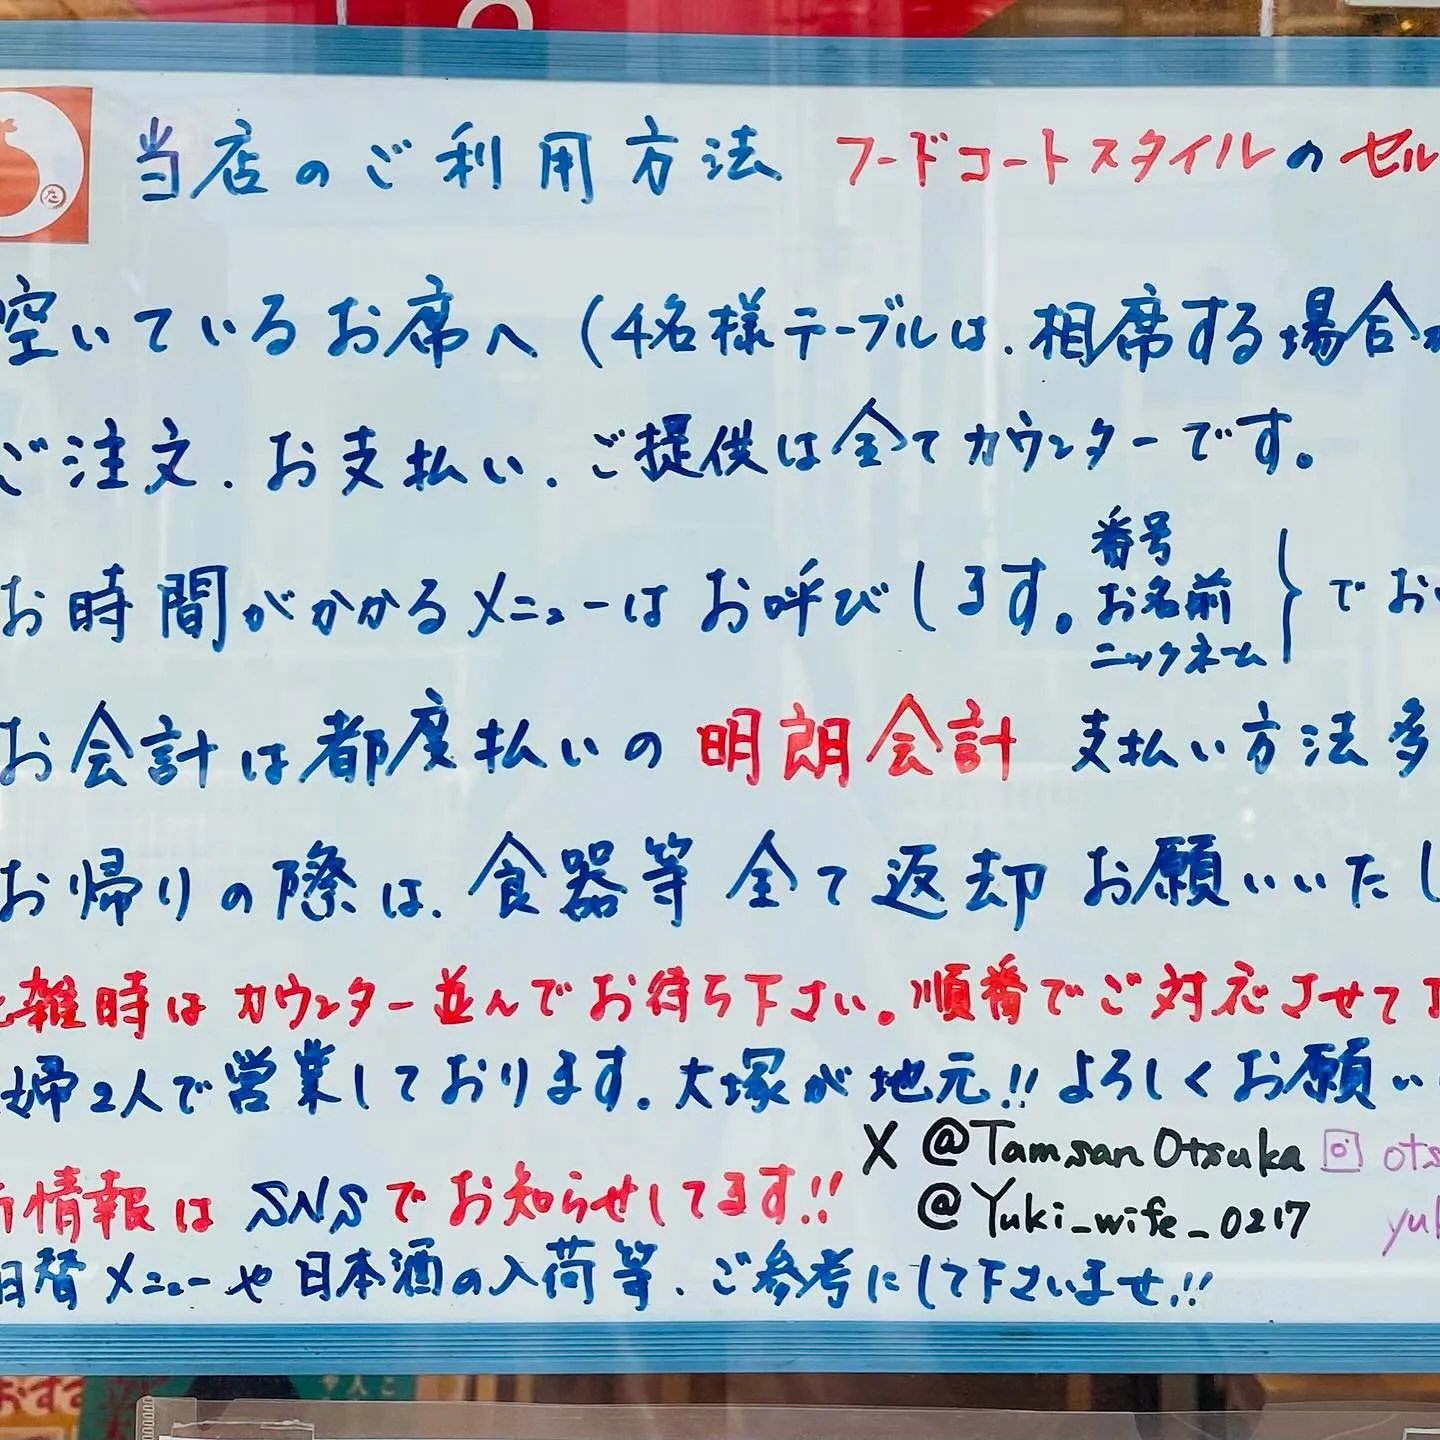 当店のご利用方法 フードコートスタイルのセル
た
空いているお席へ (4名様テーブルは、相席する場合
ご注文、お支払い、ご提供は全てカウンターです。
お時間がかかるメニューはお呼びします。番号 お名前 ニックネーム } でお
お会計は都度払いの明朗会計 支払い方法多
お帰りの際は、食器等全て返却お願いいたし
雑時はカウンター並んでお待ち下さい。順番でご対応させて
婦2人で営業しております。大塚が地元!! よろしくお願い
X @TamsanOtsuka ots
情報はSNSでお知らせしてます!!
@Yuki_wife_0217 yuk
日替メニューや日本酒の入荷等、ご参考にして下さいませ!!
おすす